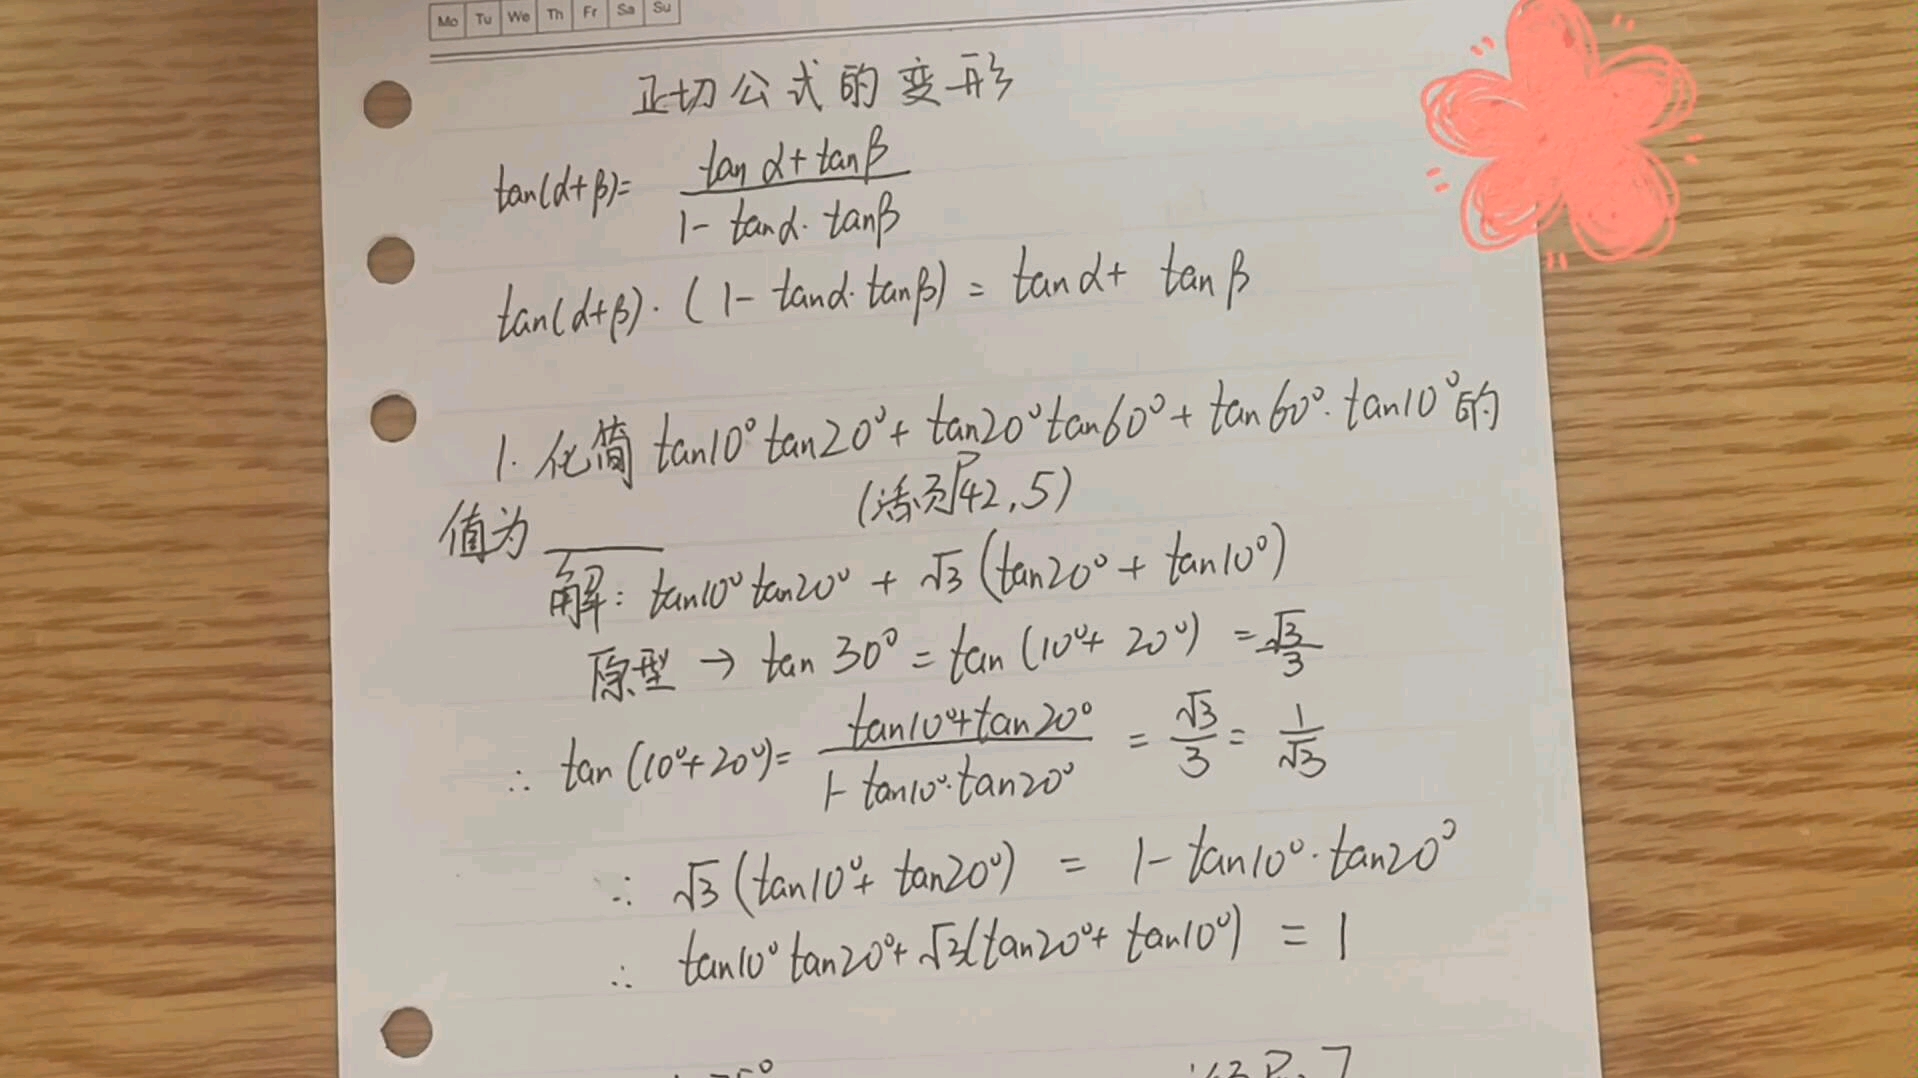 Mo Tu We Th Fr Sa Su
正切公式的变形
tan(α+β)= (tanα+tanβ)/(1-tanα·tanβ)
tan(α+β)·(1-tanα·tanβ)=tanα+tanβ
1.化简 tan10°tan20°+tan20°tan60°+tan60°·tan10°的
值为____ (活页P42,5)
解:tan10°tan20°+√3(tan20°+tan10°)
原型→tan30°=tan(10°+20°)=√3/3
∴ tan(10°+20°)= (tan10°+tan20°)/(1-tan10°·tan20°) = √3/3 = 1/√3
∴ √3(tan10°+tan20°) = 1-tan10°·tan20°
∴ tan10°tan20°+√3(tan20°+tan10°) = 1